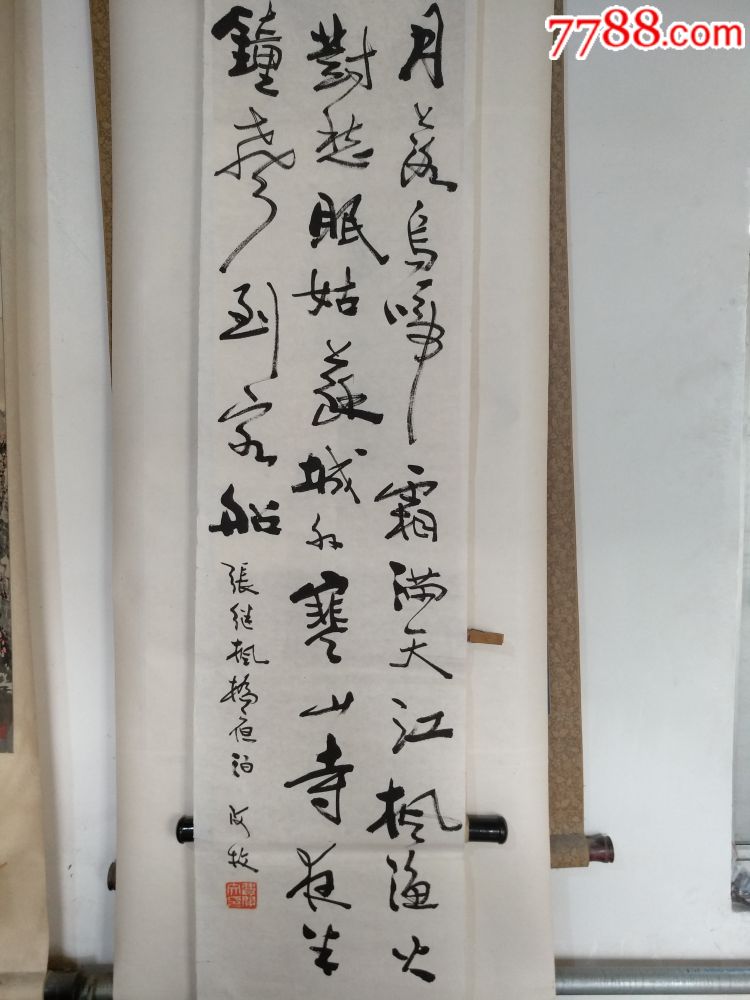 7788.com
月落烏啼霜满天江枫渔火
對愁眠姑蘇城外寒山寺夜半
鐘聲到客船
張继枫橋夜泊
牧